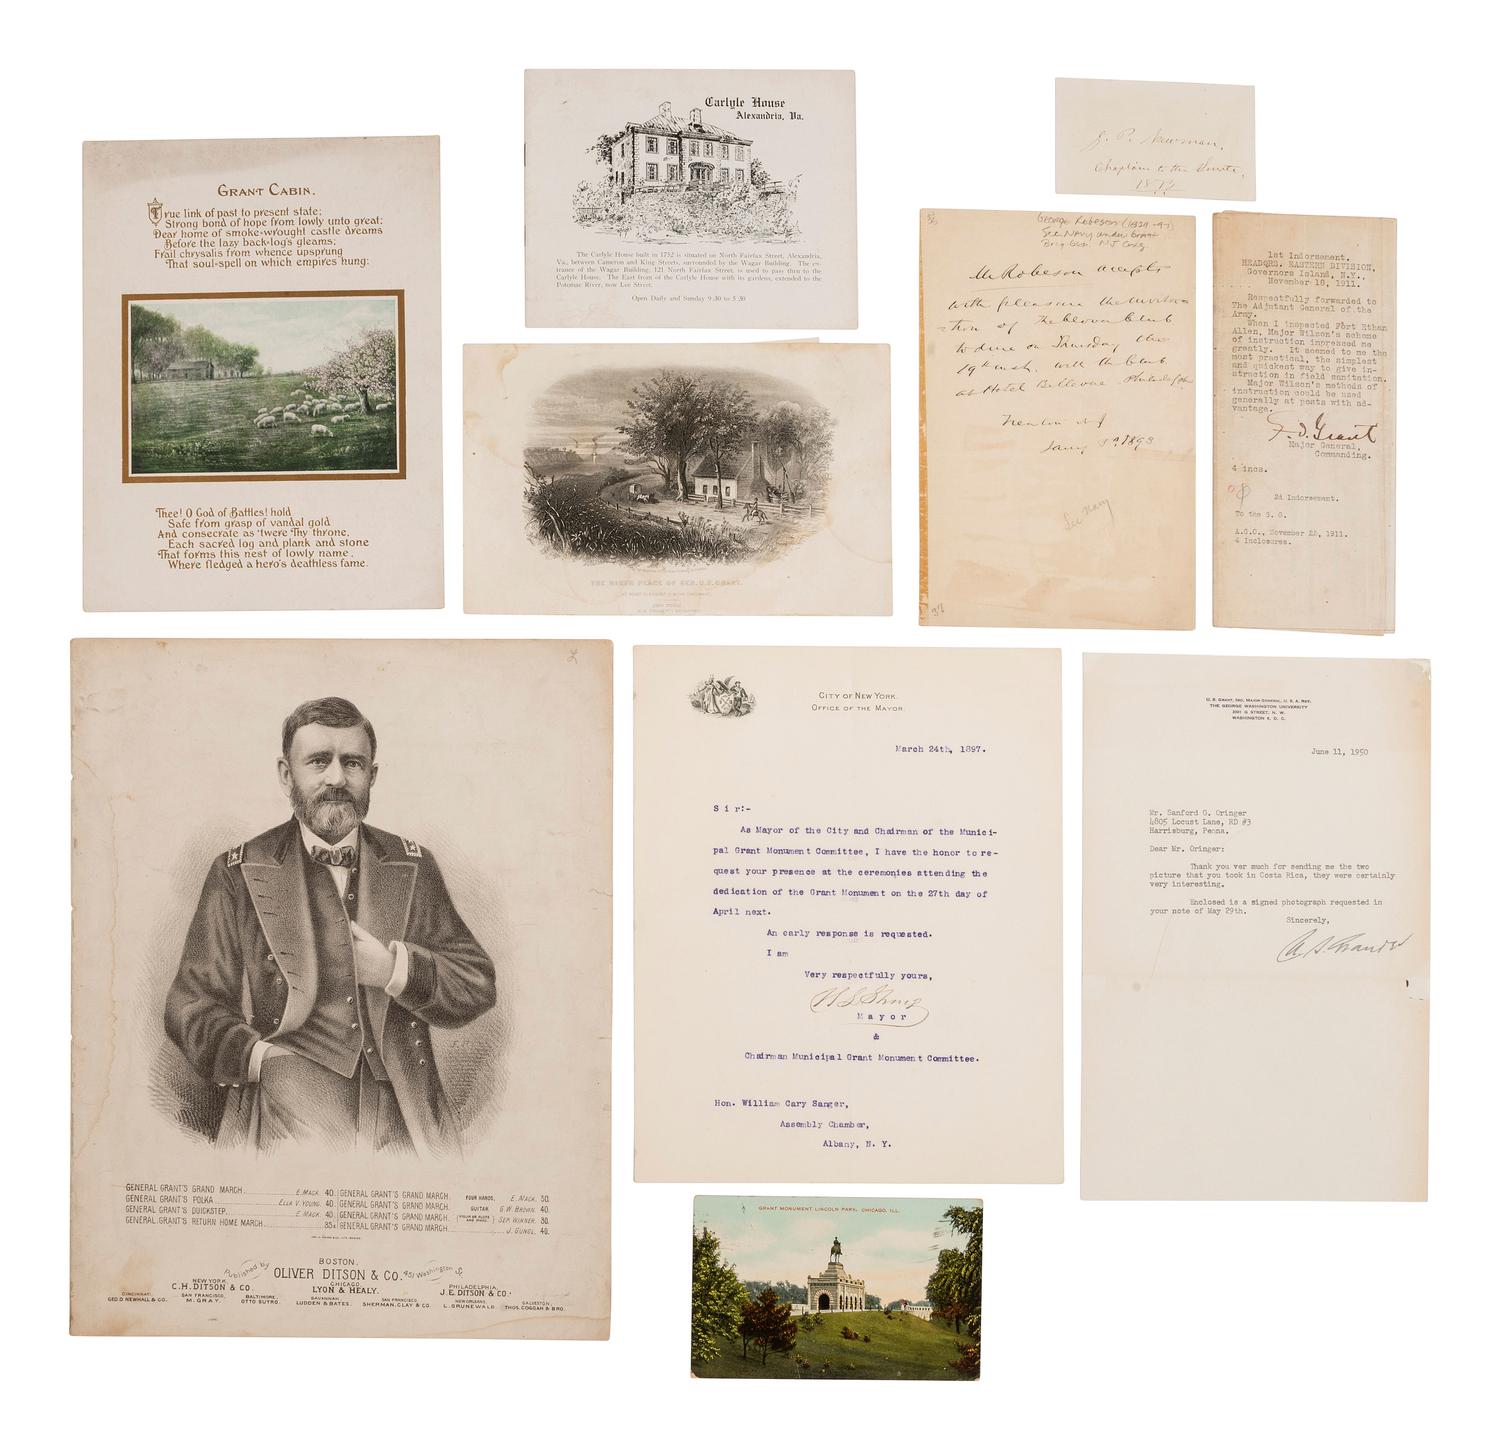 GRANT CABIN.
True link of past to present state;
Strong bond of hope from lowly unto great:
Dear home of smoke-wrought castle dreams
Before the lazy back-log's gleams;
Frail chrysalis from whence upsprung
That soul-spell on which empires hung:
Thee! O God of Battles! hold
Safe from grasp of vandal gold
And consecrate as 'twere Thy throne,
Each sacred log and plank and stone
That forms this nest of lowly name,
Where fledged a hero's deathless fame.
Carlyle House
Alexandria, Va.
The Carlyle House built in 1752 is situated on North Fairfax Street, Alexandria,
Va., between Cameron and King Streets, surrounded by the Wagar Building. The en-
trance of the Wagar Building, 121 North Fairfax Street, is used to pass thru to the
Carlyle House. The East front of the Carlyle House with its gardens, extended to the
Potomac River, now Lee Street.
Open Daily and Sunday 9:30 to 5:30
THE BIRTH PLACE OF GEN. U.S. GRANT.
J. P. Newman,
Chaplain to the Senate,
1872
George Robeson (1829-97)
Sec Navy under Grant
Brig Gen. NJ
Mr Robeson accepts
with pleasure the invita-
tion of the Clover Club
to dine on Thursday the
19th inst. with the Club
at Hotel Bellevue Philadelphia
Trenton NJ
Jany 3d 1893
Sec Navy
1st Indorsement.
HEADQRS. EASTERN DIVISION,
Governors Island, N.Y.,
November 18, 1911.
Respectfully forwarded to
The Adjutant General of the
Army.
When I inspected Fort Ethan
Allen, Major Wilson's scheme
of instruction impressed me
greatly. It seemed to me the
most practical, the simplest
and quickest way to give in-
struction in field sanitation.
Major Wilson's methods of
instruction could be used
generally at posts with ad-
vantage.
F. D. Grant
Major General,
Commanding.
4 incs.
2d Indorsement.
To the S. G.
A.G.O., November 23, 1911.
4 Inclosures.
GENERAL GRANT'S GRAND MARCH E. MACK. 40.
GENERAL GRANT'S POLKA ELLA V. YOUNG. 40.
GENERAL GRANT'S QUICKSTEP E. MACK. 40.
GENERAL GRANT'S RETURN HOME MARCH 35
GENERAL GRANT'S GRAND MARCH. FOUR HANDS, E. MACK. 50.
GENERAL GRANT'S GRAND MARCH. GUITAR G.W. BROWN. 40.
GENERAL GRANT'S GRAND MARCH. (VIOLIN OR FLUTE AND PIANO.) SEP. WINNER. 30.
GENERAL GRANT'S GRAND MARCH J. GUNGL. 40.
BOSTON.
Published by OLIVER DITSON & CO. 451 Washington St.
NEW YORK. C.H. DITSON & CO.
CHICAGO. LYON & HEALY.
PHILADELPHIA. J.E. DITSON & CO.
CINCINNATI. GEO. D. NEWHALL & CO.
SAN FRANCISCO. M. GRAY.
BALTIMORE. OTTO SUTRO.
SAVANNAH. LUDDEN & BATES.
SAN FRANCISCO. SHERMAN, CLAY & CO.
NEW ORLEANS. L. GRUNEWALD.
GALVESTON. THOS. GOGGAN & BRO.
CITY OF NEW YORK.
OFFICE OF THE MAYOR.
March 24th, 1897.
Sir:-
As Mayor of the City and Chairman of the Munici-
pal Grant Monument Committee, I have the honor to re-
quest your presence at the ceremonies attending the
dedication of the Grant Monument on the 27th day of
April next.
An early response is requested.
I am
Very respectfully yours,
W L Strong
Mayor
&
Chairman Municipal Grant Monument Committee.
Hon. William Cary Sanger,
Assembly Chamber,
Albany, N. Y.
U. S. GRANT, 3RD, MAJOR GENERAL, U. S. A. RET.
THE GEORGE WASHINGTON UNIVERSITY
2001 G STREET, N. W.
WASHINGTON 6, D. C.
June 11, 1950
Mr. Sanford G. Oringer
4805 Locust Lane, RD #3
Harrisburg, Penna.
Dear Mr. Oringer:
Thank you ver much for sending me the two
picture that you took in Costa Rica, they were certainly
very interesting.
Enclosed is a signed photograph requested in
your note of May 29th.
Sincerely,
U. S. Grant 3d
GRANT MONUMENT LINCOLN PARK, CHICAGO, ILL.